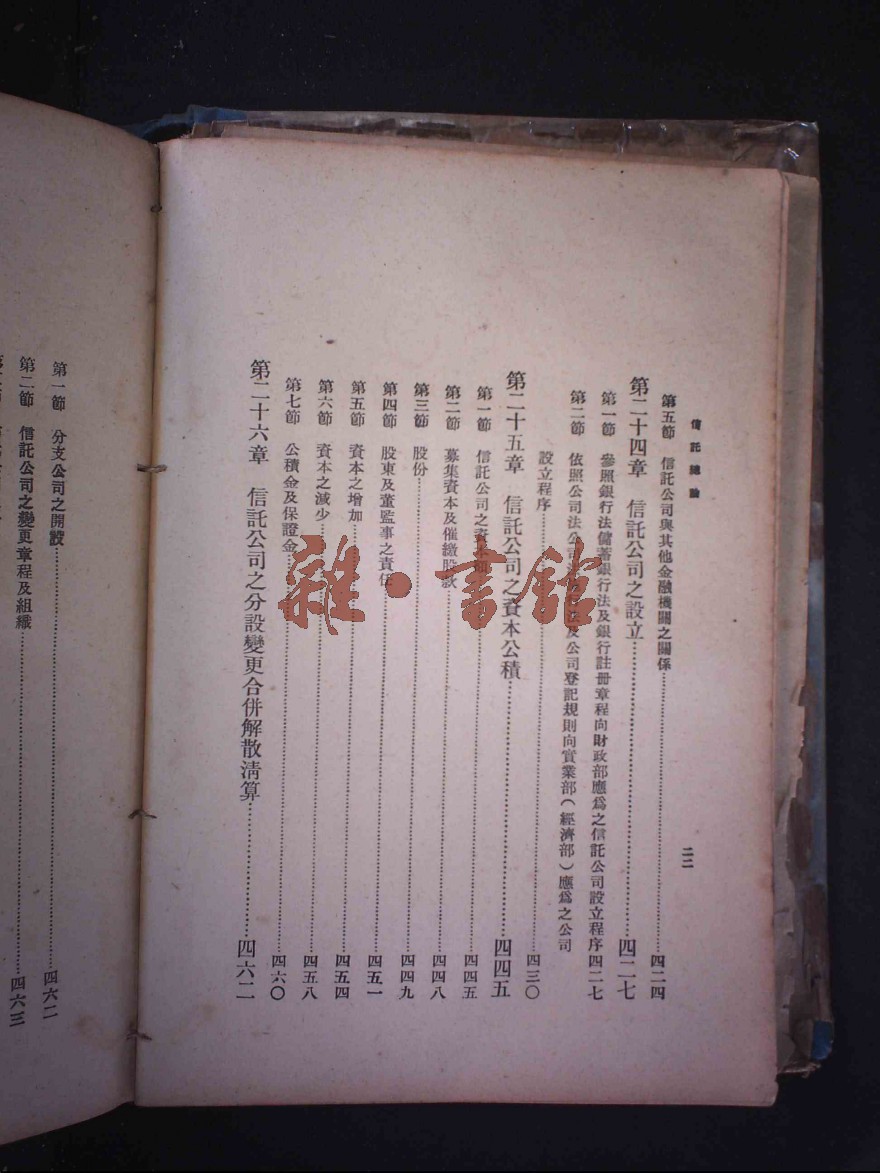 信託總論
二二
第五節 信託公司與其他金融機關之關係……四二四
第二十四章 信託公司之設立……四二七
第一節 參照銀行法儲蓄銀行法及銀行註冊章程向財政部應爲之信託公司設立程序四二七
第二節 依照公司法公司法及公司登記規則向實業部(經濟部)應爲之公司
設立程序……四三〇
第二十五章 信託公司之資本公積……四四五
第一節 信託公司之資本……四四五
第二節 募集資本及催繳股款……四四八
第三節 股份……四四九
第四節 股東及董監事之責任……四五一
第五節 資本之增加……四五四
第六節 資本之減少……四五八
第七節 公積金及保證金……四六〇
第二十六章 信託公司之分設變更合併解散清算……四六二
第一節 分支公司之開設……四六二
第二節 信託公司之變更章程及組織……四六三
雜·書館